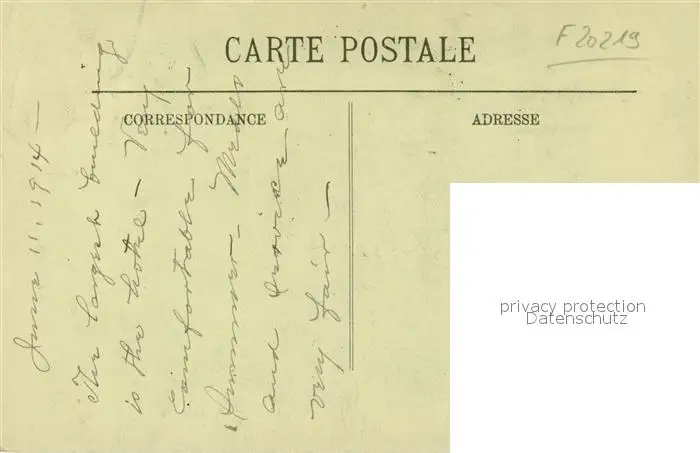 F 20219
CARTE POSTALE
CORRESPONDANCE
ADRESSE
June 11, 1914 —
The largest building
is the hotel — Very
comfortable for
Summer — Meals
and service are
very fair —
privacy protection
Datenschutz